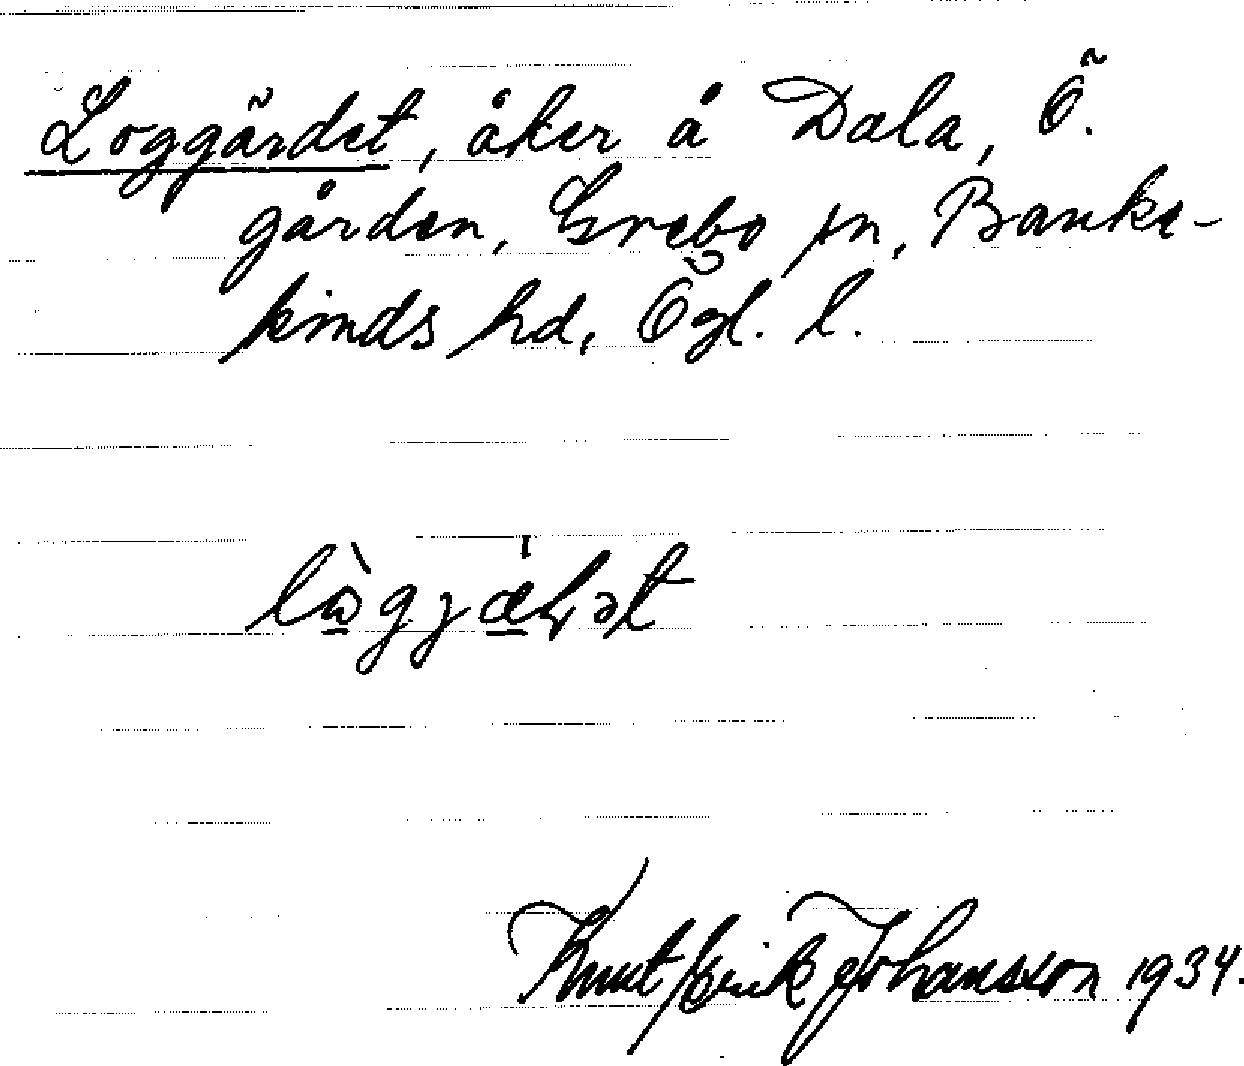 Loggärdet, åker å Dala, Ö.
gården, Grebo sn, Banke-
kinds hd, Ögl. l.
Knut Erik Johansson 1934.